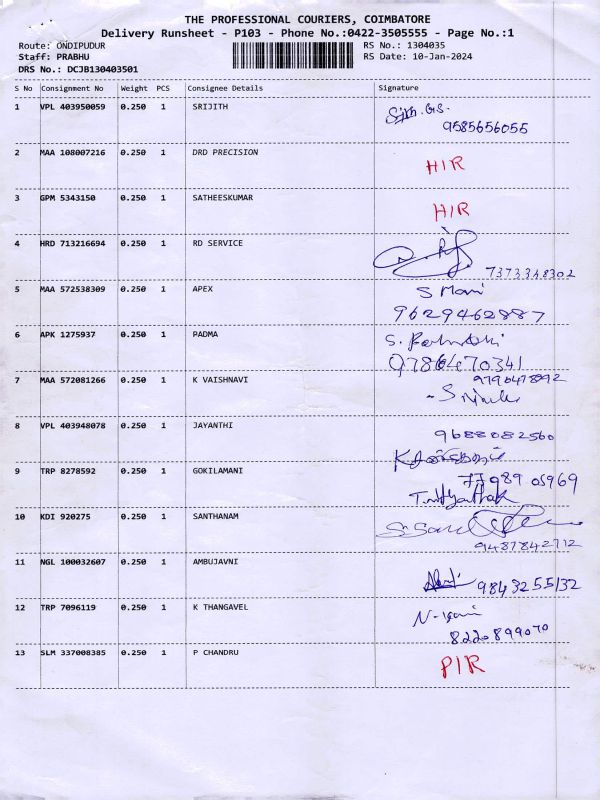 THE PROFESSIONAL COURIERS, COIMBATORE
Delivery Runsheet - P103 - Phone No.:0422-3505555 - Page No.:1
Route: ONDIPUDUR RS No.: 1304035
Staff: PRABHU RS Date: 10-Jan-2024
DRS No.: DCJB130403501
S No Consignment No Weight PCS Consignee Details Signature
1 VPL 403950059 0.250 1 SRIJITH
9585656055
2 MAA 108007216 0.250 1 DRD PRECISION HIR
3 GPM 5343150 0.250 1 SATHEESKUMAR HIR
4 HRD 713216694 0.250 1 RD SERVICE
7373348302
5 MAA 572538309 0.250 1 APEX S Mani
9629462887
6 APK 1275937 0.250 1 PADMA
9786470341
7 MAA 572081266 0.250 1 K VAISHNAVI
8 VPL 403948078 0.250 1 JAYANTHI 9688082560
9 TRP 8278592 0.250 1 GOKILAMANI 77089 05969
10 KDI 920275 0.250 1 SANTHANAM
9487842712
11 NGL 100032607 0.250 1 AMBUJAVNI
9843255132
12 TRP 7096119 0.250 1 K THANGAVEL
8220899070
13 SLM 337008385 0.250 1 P CHANDRU PIR